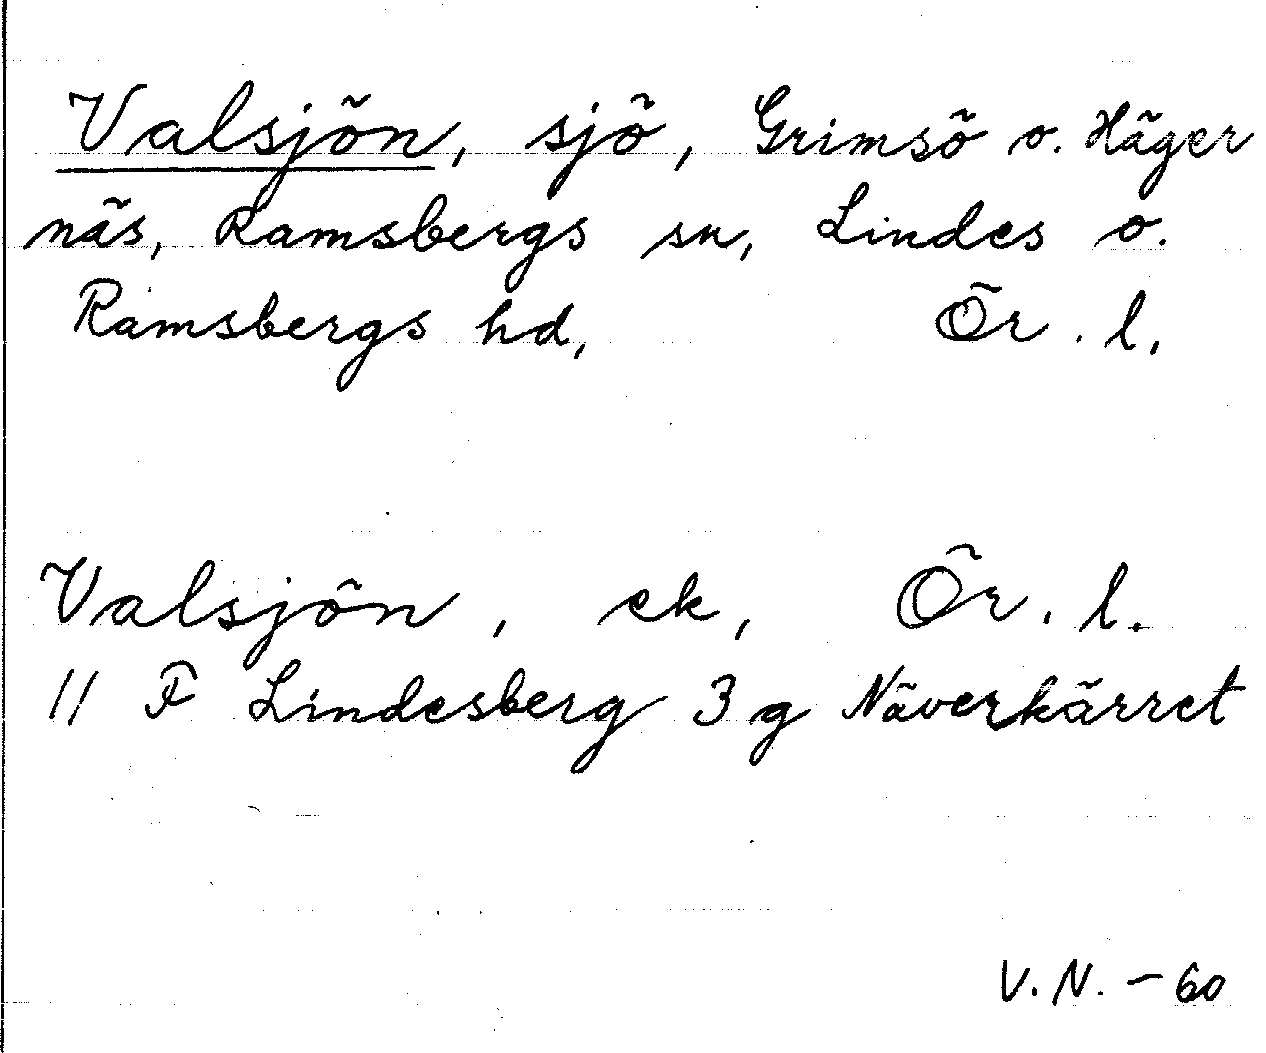 Valsjön, sjö, Grimsö o. Häger
näs, Ramsbergs sn, Lindes o.
Ramsbergs hd, Ör. l,
Valsjön, ek, Ör. l.
// F Lindesberg 3 g Näverkärret
V.N. - 60